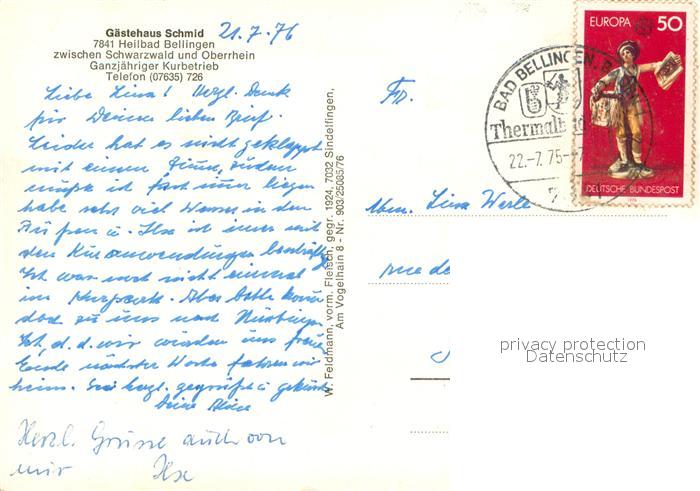 Gästehaus Schmid 21.7.76
7841 Heilbad Bellingen
zwischen Schwarzwald und Oberrhein
Ganzjähriger Kurbetrieb
Telefon (07635) 726
Liebe Lina! Herzl. Dank
für Deinen lieben Brief.
Leider hat es nicht geklappt
mit einem
muß ich fast immer liegen
habe sehr viel Wasser in den
Füßen u. Ilse ist immer mit
den Kuranwendungen beschäftigt
Ich war noch nicht einmal
im Kurpark. Aber bitte komm
doch zu uns nach
wir würden uns freuen
Ende nächster Woche fahren wir
heim. Sei herzl. gegrüßt u. geküsst
Deine
Herzl. Grüsse auch von
mir Ilse
W. Feldmann, vorm. Fleisch, gegr. 1924, 7032 Sindelfingen,
Am Vogelhain 8 - Nr. 903/25085/76
Fr.
Lina Werle
rue de
BAD BELLINGEN, B
Thermalb
22.-7.75-
EUROPA 50
DEUTSCHE BUNDESPOST
1976
privacy protection
Datenschutz